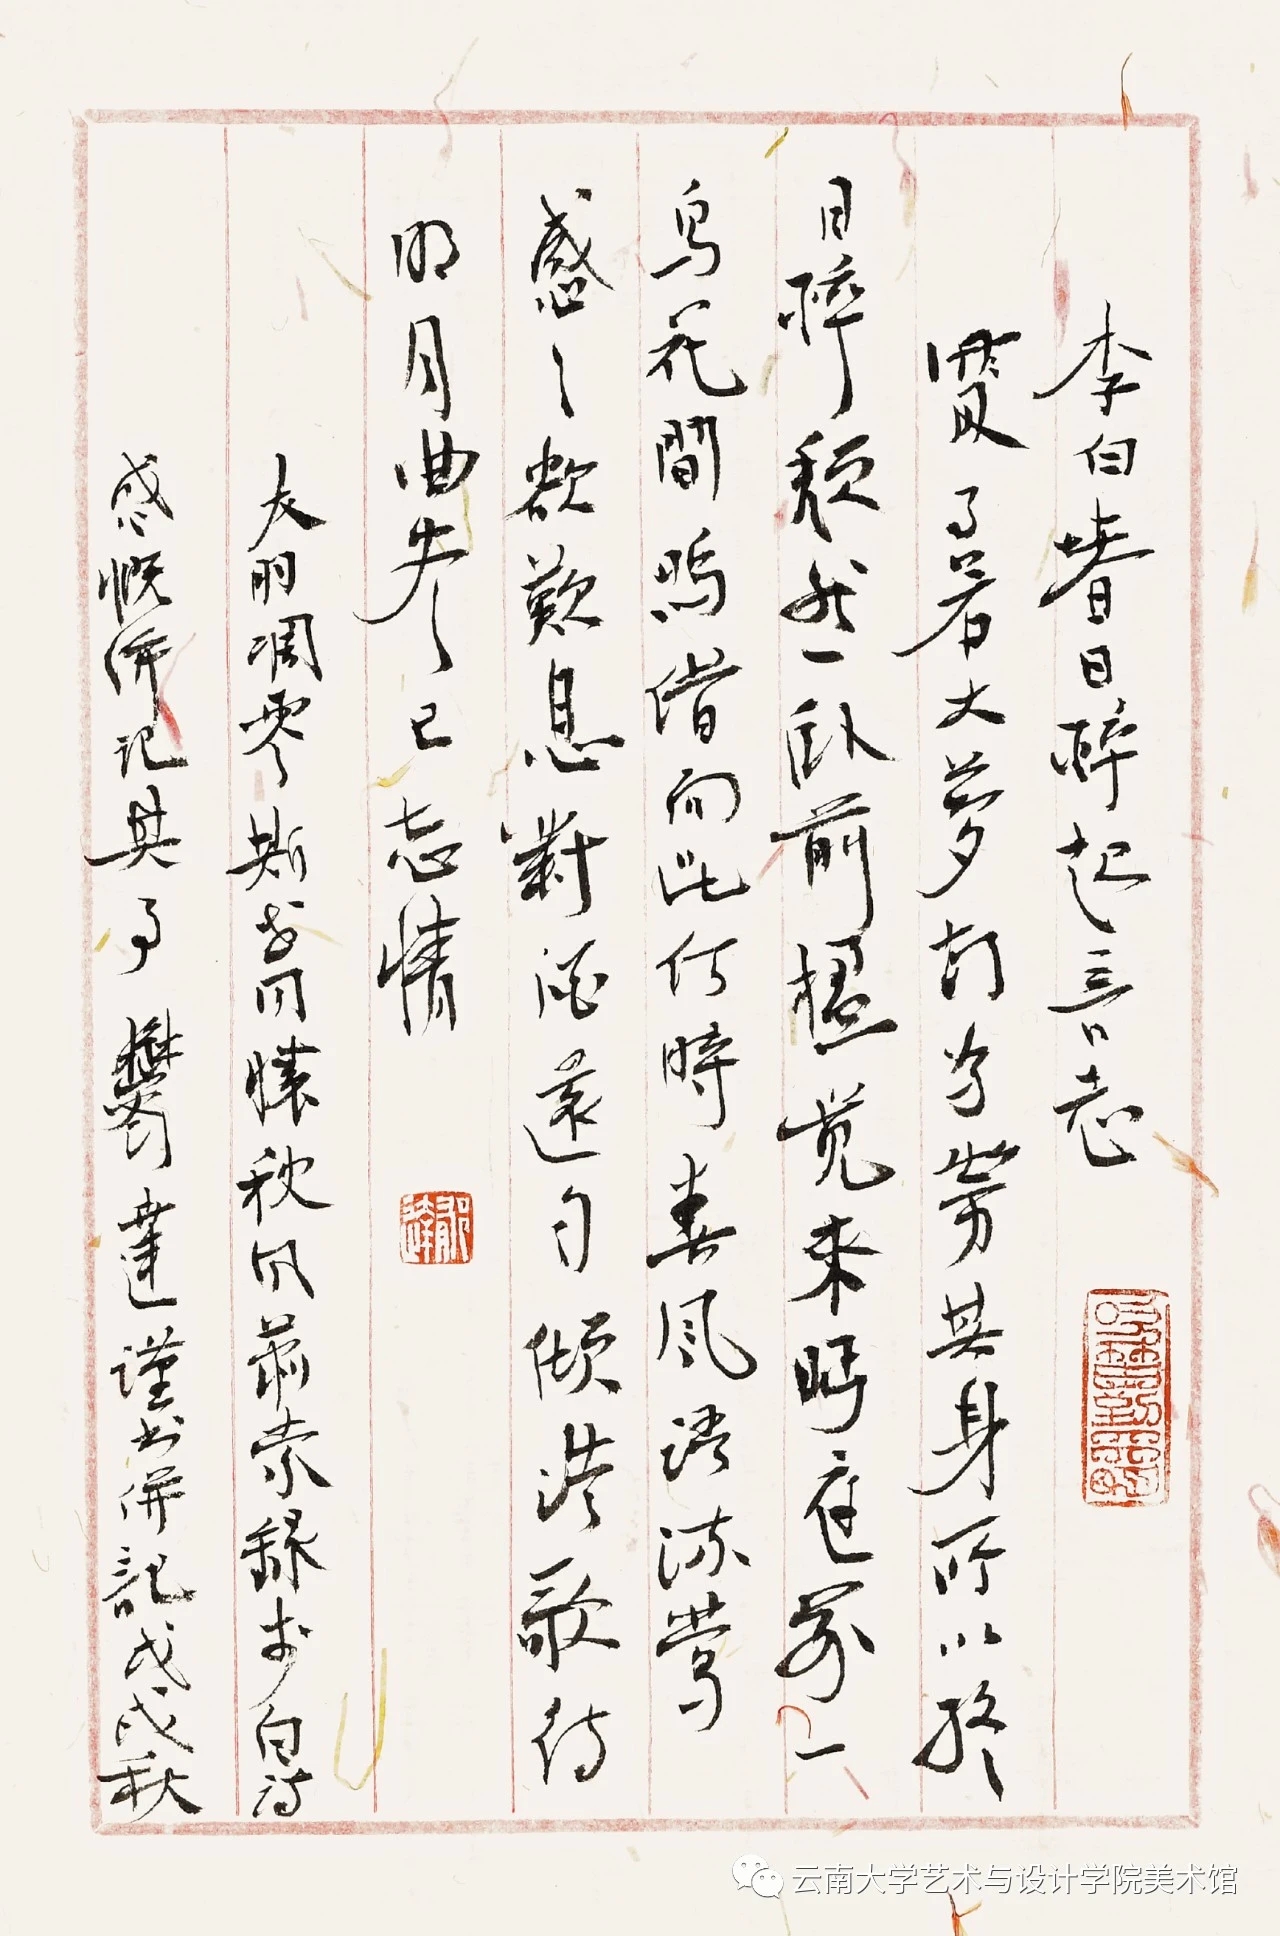 李白春日醉起言志
若大夢胡為勞其身所以終
日醉頹然一臥前楹覺來眄庭前一
鳥花間鳴借問此何時春風語流鶯
感之欲歎息對酒還自傾浩歌待
明月曲盡已忘情
朋凋零斯同秋風蕭索錄白詩
感慨併記其事鬱達謹書併記戊戌秋
云南大学艺术与设计学院美术馆